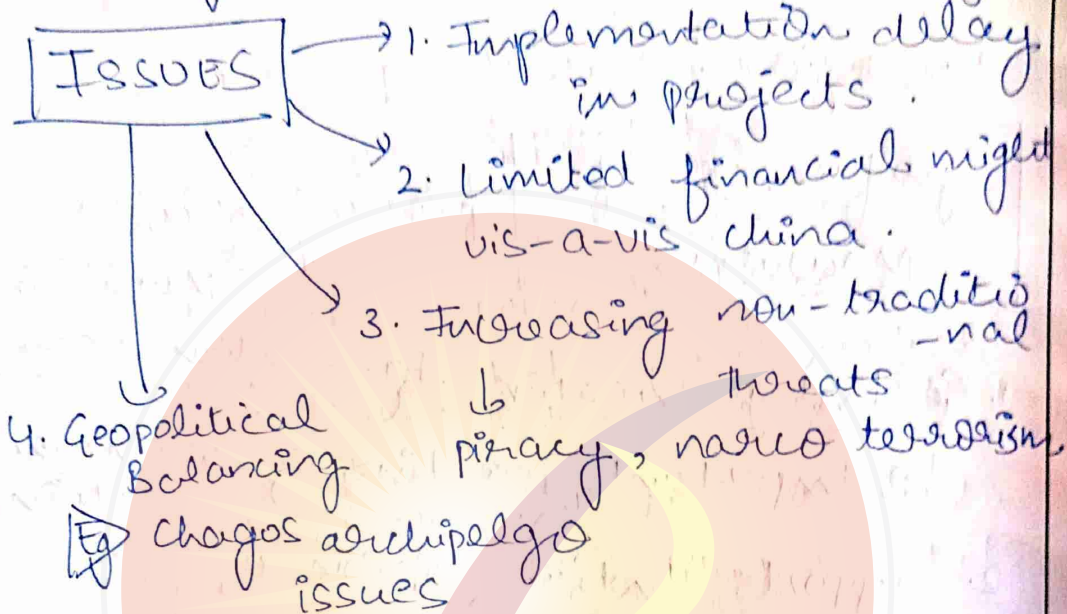 ISSUES
1. Implementation delay
in projects.
2. Limited financial might
vis-a-vis china.
3. Increasing non-traditio
-nal
threats
piracy, narco terrorism
4. Geopolitical
Balancing
Eg Chagos archipelgo
issues